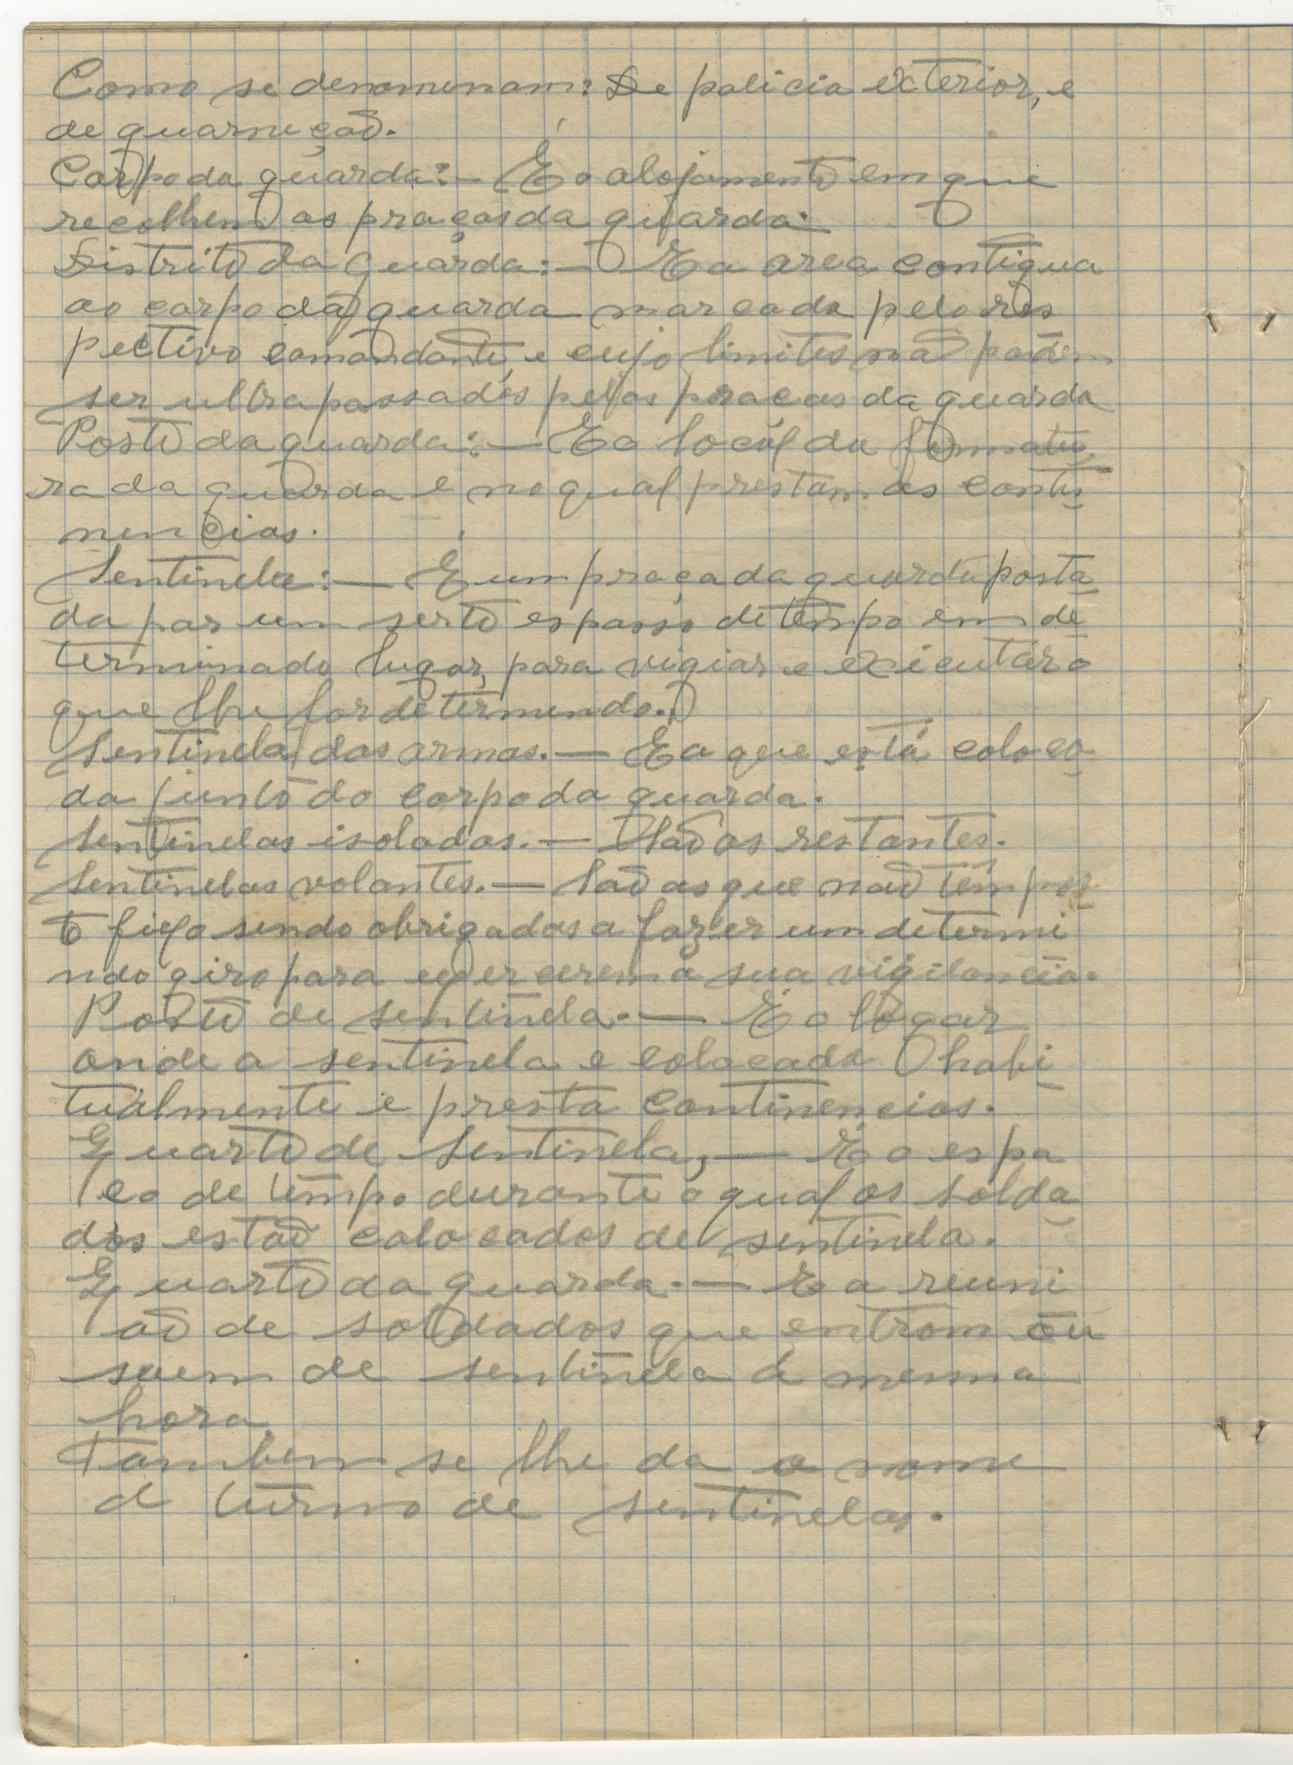 Como se denomenam: De policia exterior, e
de guarnição.
Corpo da guarda:- É o alojamento em que
recolhem as praças da guarda.
Distrito da Guarda:- E a area contigua
ao corpo da guarda marcada pelo res
pectivo comandante, e cujo limites não podem
ser ultrapassados pelas praças da guarda
Posto da guarda:- E o local da formatu
ra da guarda e no qual prestam as conti
nencias.
Sentinela:- É um praça da guarda posta
da por um serto espasso de tempo em de
terminado lugar, para vigiar e exicutar o
que lhe for determindo.
Sentinela das armas.- E a que está coloca
da junto do corpo da guarda.
Sentinelas isoladas.- São as restantes.
Sentinelas volantes.- São as que não têm pos
to fixo sendo obrigadas a fazer um determi
ndo giro para exercerem a sua vigilancia.
Posto de sentinela.- É o logar
onde a sentinela e colocada habi
tualmente e presta continencias.
Quarto de Sentinela,- É o espa
co de tempo durante o qual os solda
dos estão colocados de sentinela.
Quarto da guarda.- E a reuni
ão de soldados que entrom ou
saem de sentinela á mesma
hora.
Tambem se lhe da o nome
d turno de sentinelas.